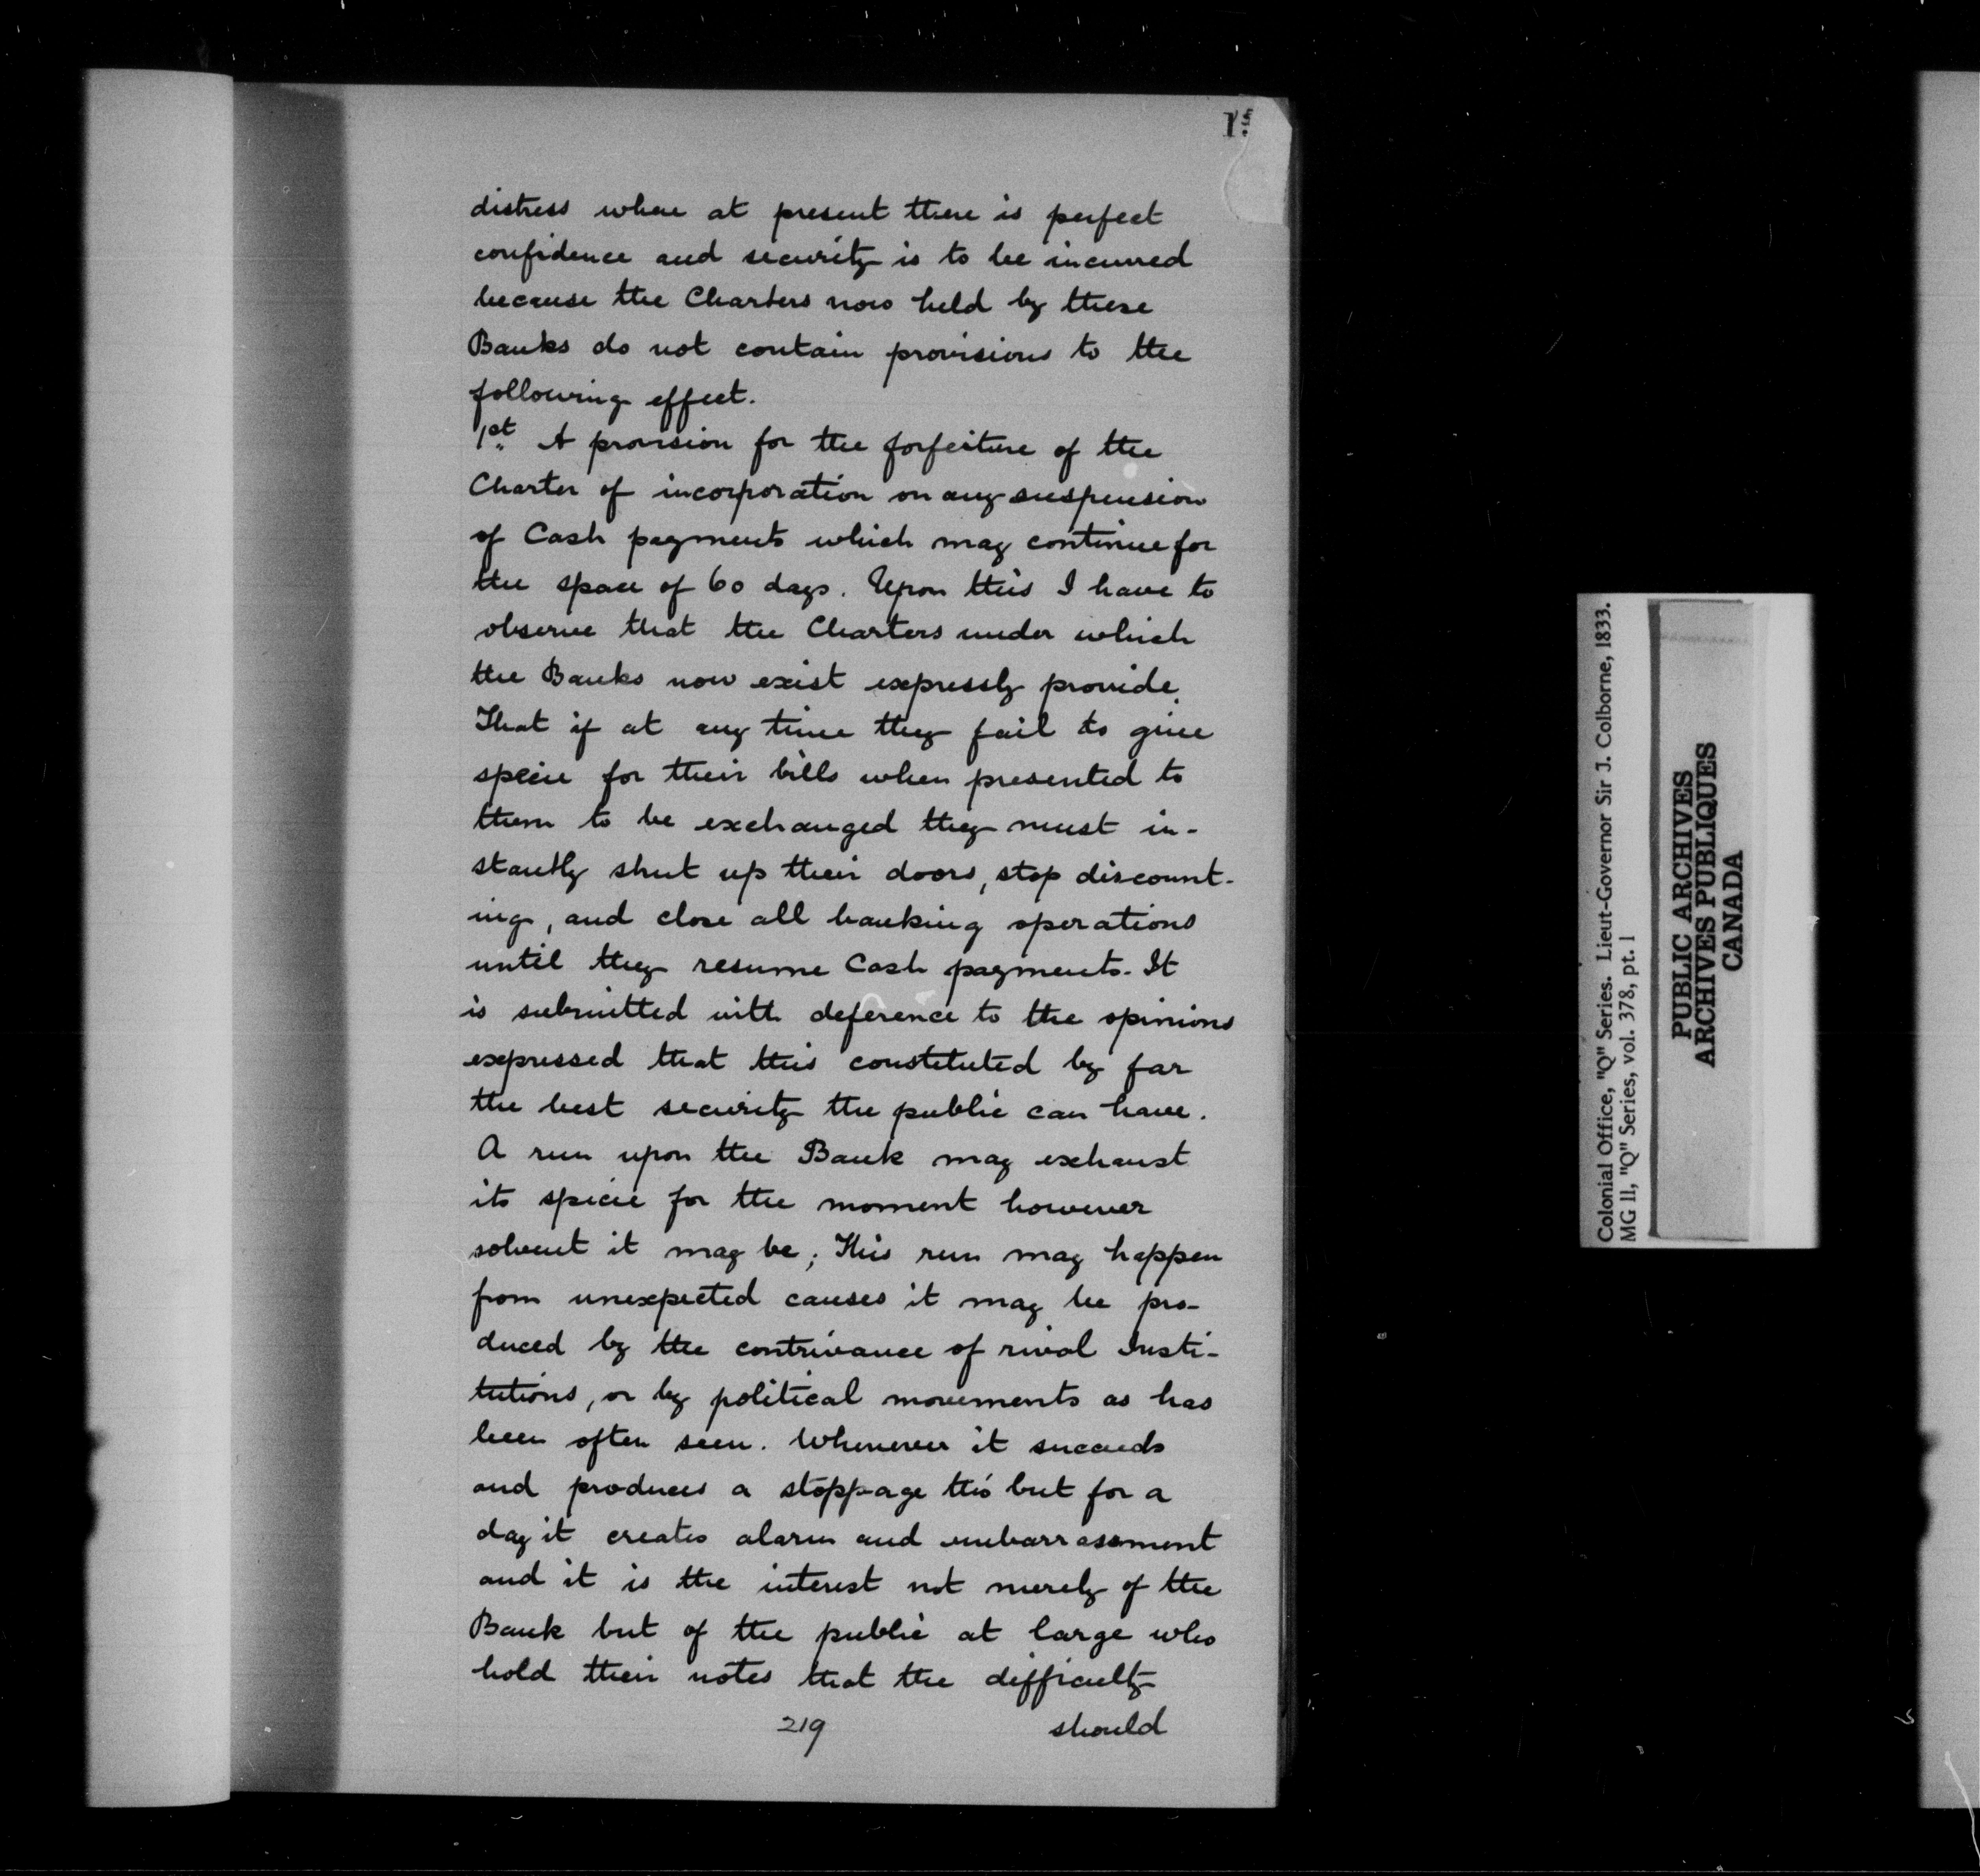 distress where at present there is perfect
confidence and security is to be incurred
because the Charters now held by these
Banks do not contain provisions to the
following effect.
1st. A provision for the forfeiture of the
Charter of incorporation on any suspension
of Cash payments which may continue for
the space of 60 days. Upon this I have to
observe that the Charters under which
the Banks now exist expressly provide.
That if at any time they fail to give
specie for their bills when presented to
them to be exchanged they must in-
stantly shut up their doors, stop discount-
ing, and close all banking operations
until they resume Cash payments. It
is submitted with deference to the opinions
expressed that this constituted by far
the best security the public can have.
A run upon the Bank may exhaust
its specie for the moment however
solvent it may be; This run may happen
from unexpected causes it may be pro-
duced by the contrivance of rival Insti-
tutions, or by political movements as has
been often seen. Whenever it succeeds
and produces a stoppage tho' but for a
day it creates alarm and embarrassment
and it is the interest not merely of the
Bank but of the public at large who
hold their notes that the difficulty
219 should
Colonial Office, "Q" Series. Lieut-Governor Sir J. Colborne, 1833.
MG 11, "Q" Series, vol. 378, pt. 1
PUBLIC ARCHIVES
ARCHIVES PUBLIQUES
CANADA